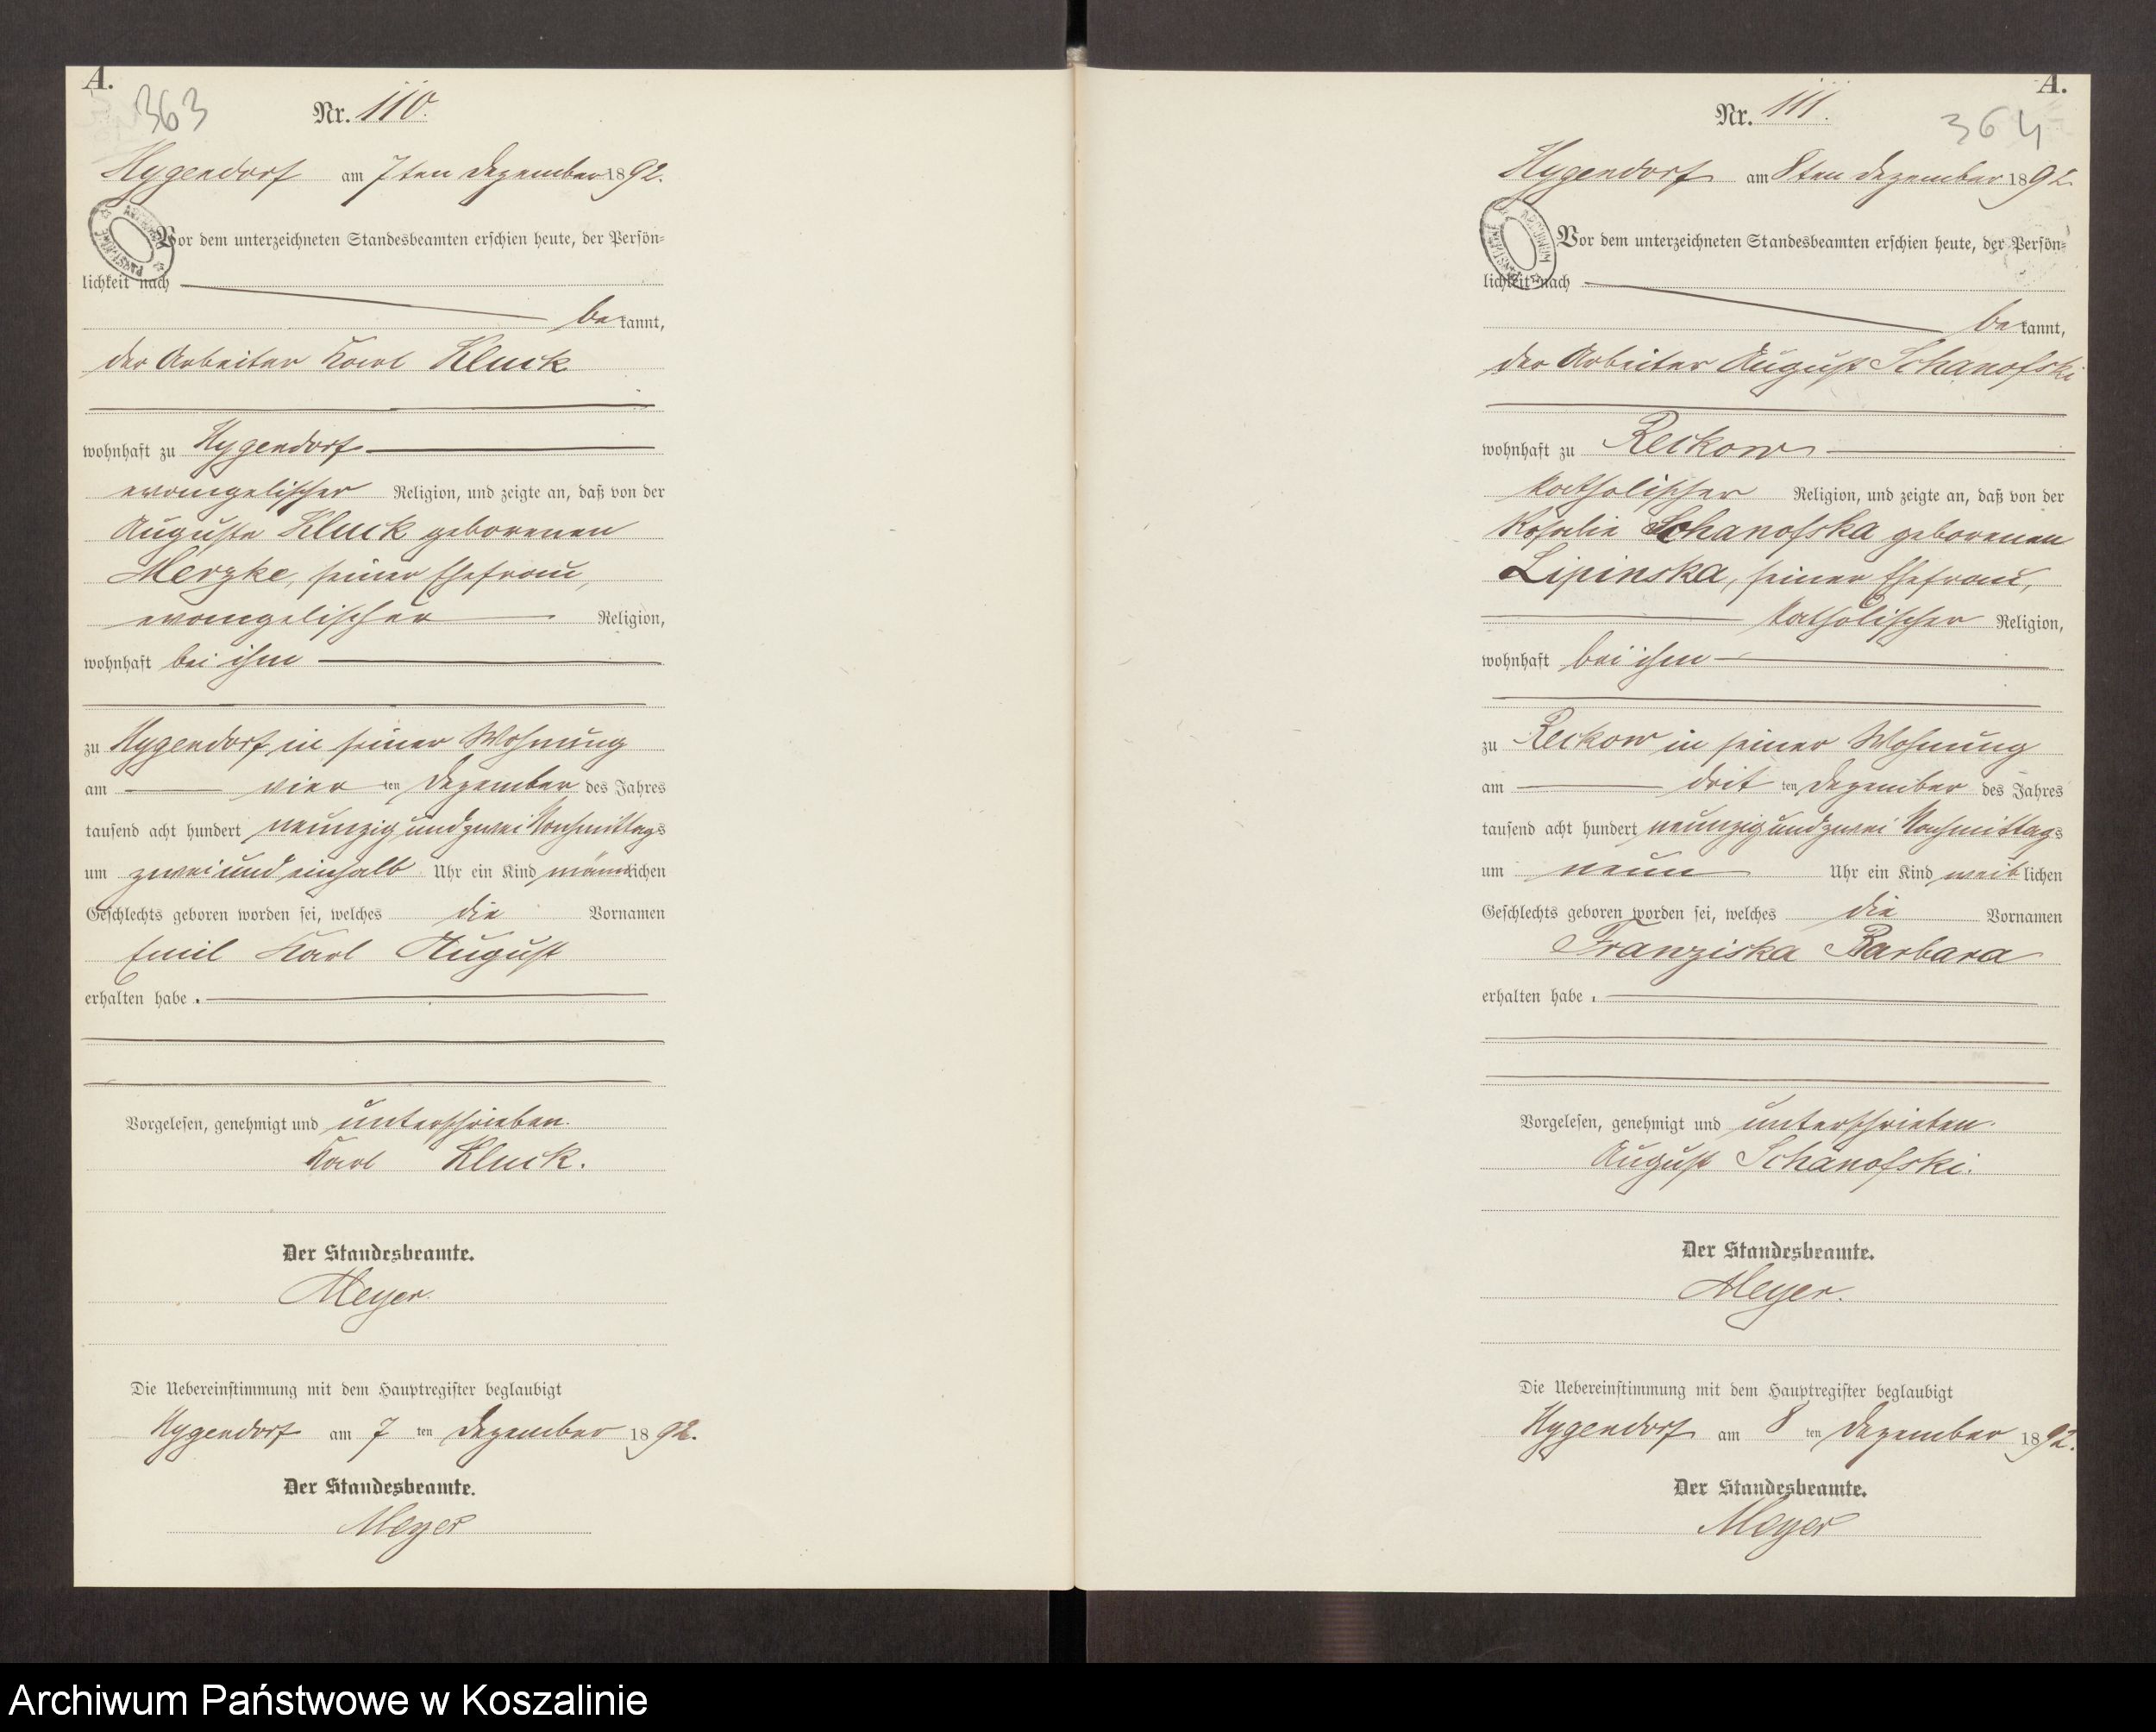 A.
363
Nr. 110.
Hygendorf am 7ten Dezember 1892.
Vor dem unterzeichneten Standesbeamten erschien heute, der Persön-
lichkeit nach
bekannt,
der Arbeiter Karl Kluck
wohnhaft zu Hygendorf
evangelischer Religion, und zeigte an, daß von der
Auguste Kluck geborenen
Merzke, seiner Ehefrau,
evangelischer Religion,
wohnhaft bei ihm
zu Hygendorf in seiner Wohnung
am vier ten Dezember des Jahres
tausend acht hundert neunzig und zwei Nachmittags
um zwei und einhalb Uhr ein Kind männlichen
Geschlechts geboren worden sei, welches die Vornamen
Emil Karl August
erhalten habe.
Vorgelesen, genehmigt und unterschrieben.
Karl Kluck.
Der Standesbeamte.
Meyer.
Die Uebereinstimmung mit dem Hauptregister beglaubigt
Hygendorf am 7 ten Dezember 1892.
Der Standesbeamte.
Meyer
A.
364
Nr. 111.
Hygendorf am 8ten Dezember 1892.
Vor dem unterzeichneten Standesbeamten erschien heute, der Persön-
lichkeit nach
bekannt,
der Arbeiter August Schanofski
wohnhaft zu Reckow
katholischer Religion, und zeigte an, daß von der
Rosalie Schanofska geborenen
Lipinska, seiner Ehefrau,
katholischer Religion,
wohnhaft bei ihm
zu Reckow in seiner Wohnung
am drit ten Dezember des Jahres
tausend acht hundert neunzig und zwei Nachmittags
um neun Uhr ein Kind weiblichen
Geschlechts geboren worden sei, welches die Vornamen
Franziska Barbara
erhalten habe.
Vorgelesen, genehmigt und unterschrieben.
August Schanofski.
Der Standesbeamte.
Meyer.
Die Uebereinstimmung mit dem Hauptregister beglaubigt
Hygendorf am 8 ten Dezember 1892.
Der Standesbeamte.
Meyer
Archiwum Państwowe w Koszalinie